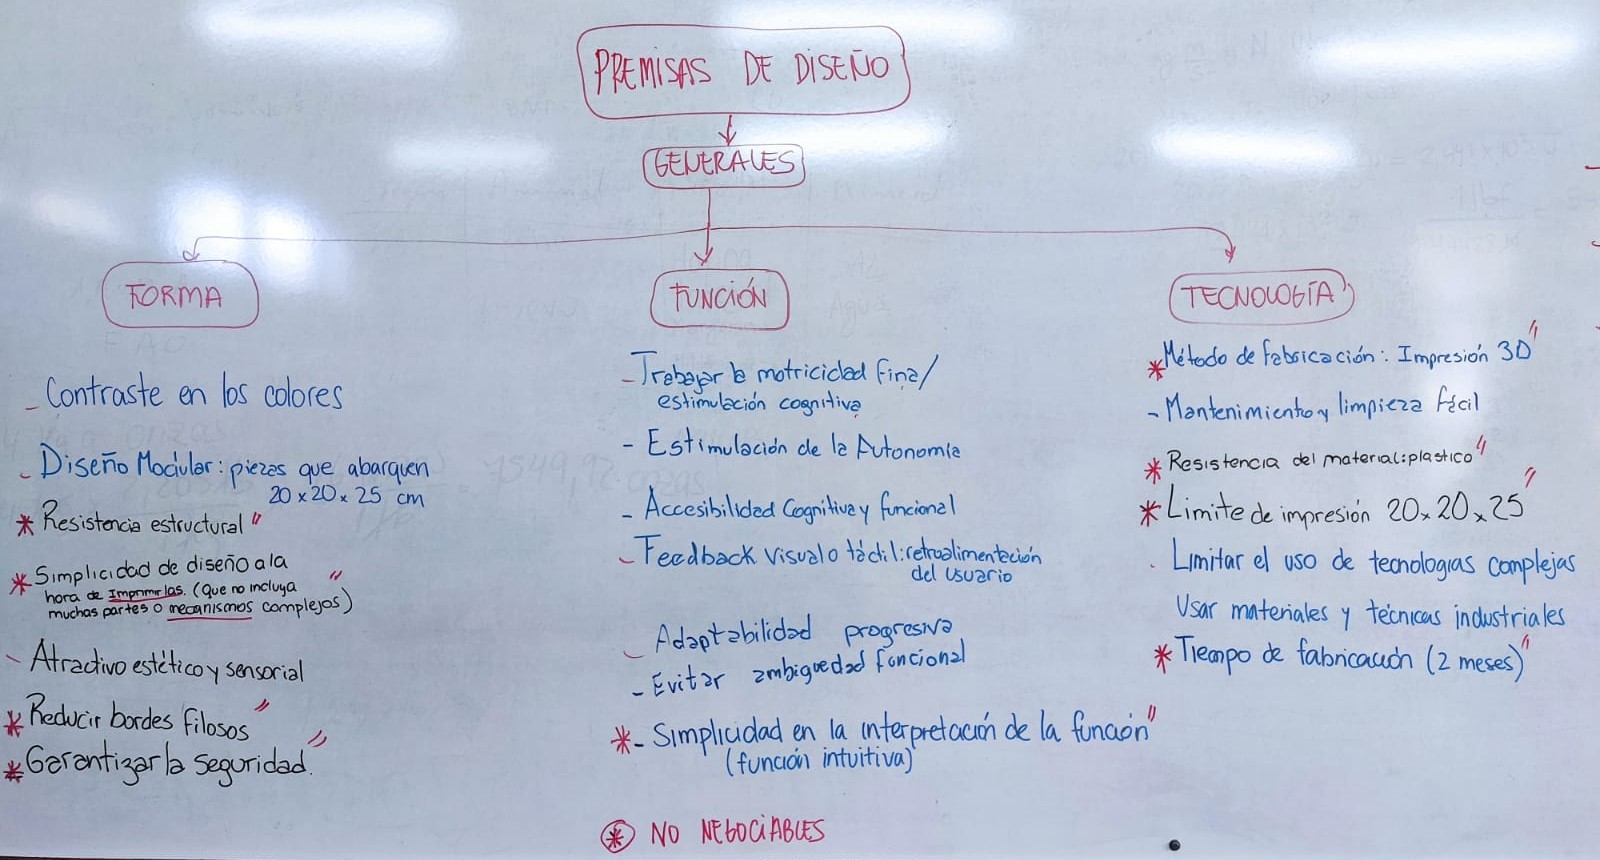 PREMISAS DE DISEÑO
GENERALES
FORMA
- Contraste en los colores
- Diseño Modular: piezas que abarquen
20 x 20 x 25 cm
* Resistencia estructural "
* Simplicidad de diseño a la
hora de Imprimirlas. (Que no incluya "
muchas partes o mecanismos complejos)
- Atractivo estético y sensorial
* Reducir bordes filosos "
* Garantizar la seguridad. "
FUNCIÓN
- Trabajar la motricidad fina/
estimulación cognitiva
- Estimulación de la Autonomía
- Accesibilidad Cognitiva y funcional
- Feedback visual o táctil: retroalimentación
del usuario
- Adaptabilidad progresiva
- Evitar ambiguedad funcional
* - Simplicidad en la interpretación de la función "
(función intuitiva)
TECNOLOGÍA
* Método de fabricación: Impresión 3D "
- Mantenimiento y limpieza fácil
* Resistencia del material: plastico "
* Limite de impresión 20 x 20 x 25 "
. Limitar el uso de tecnologías complejas
Usar materiales y técnicas industriales
* Tiempo de fabricación (2 meses) "
* NO NEGOCIABLES